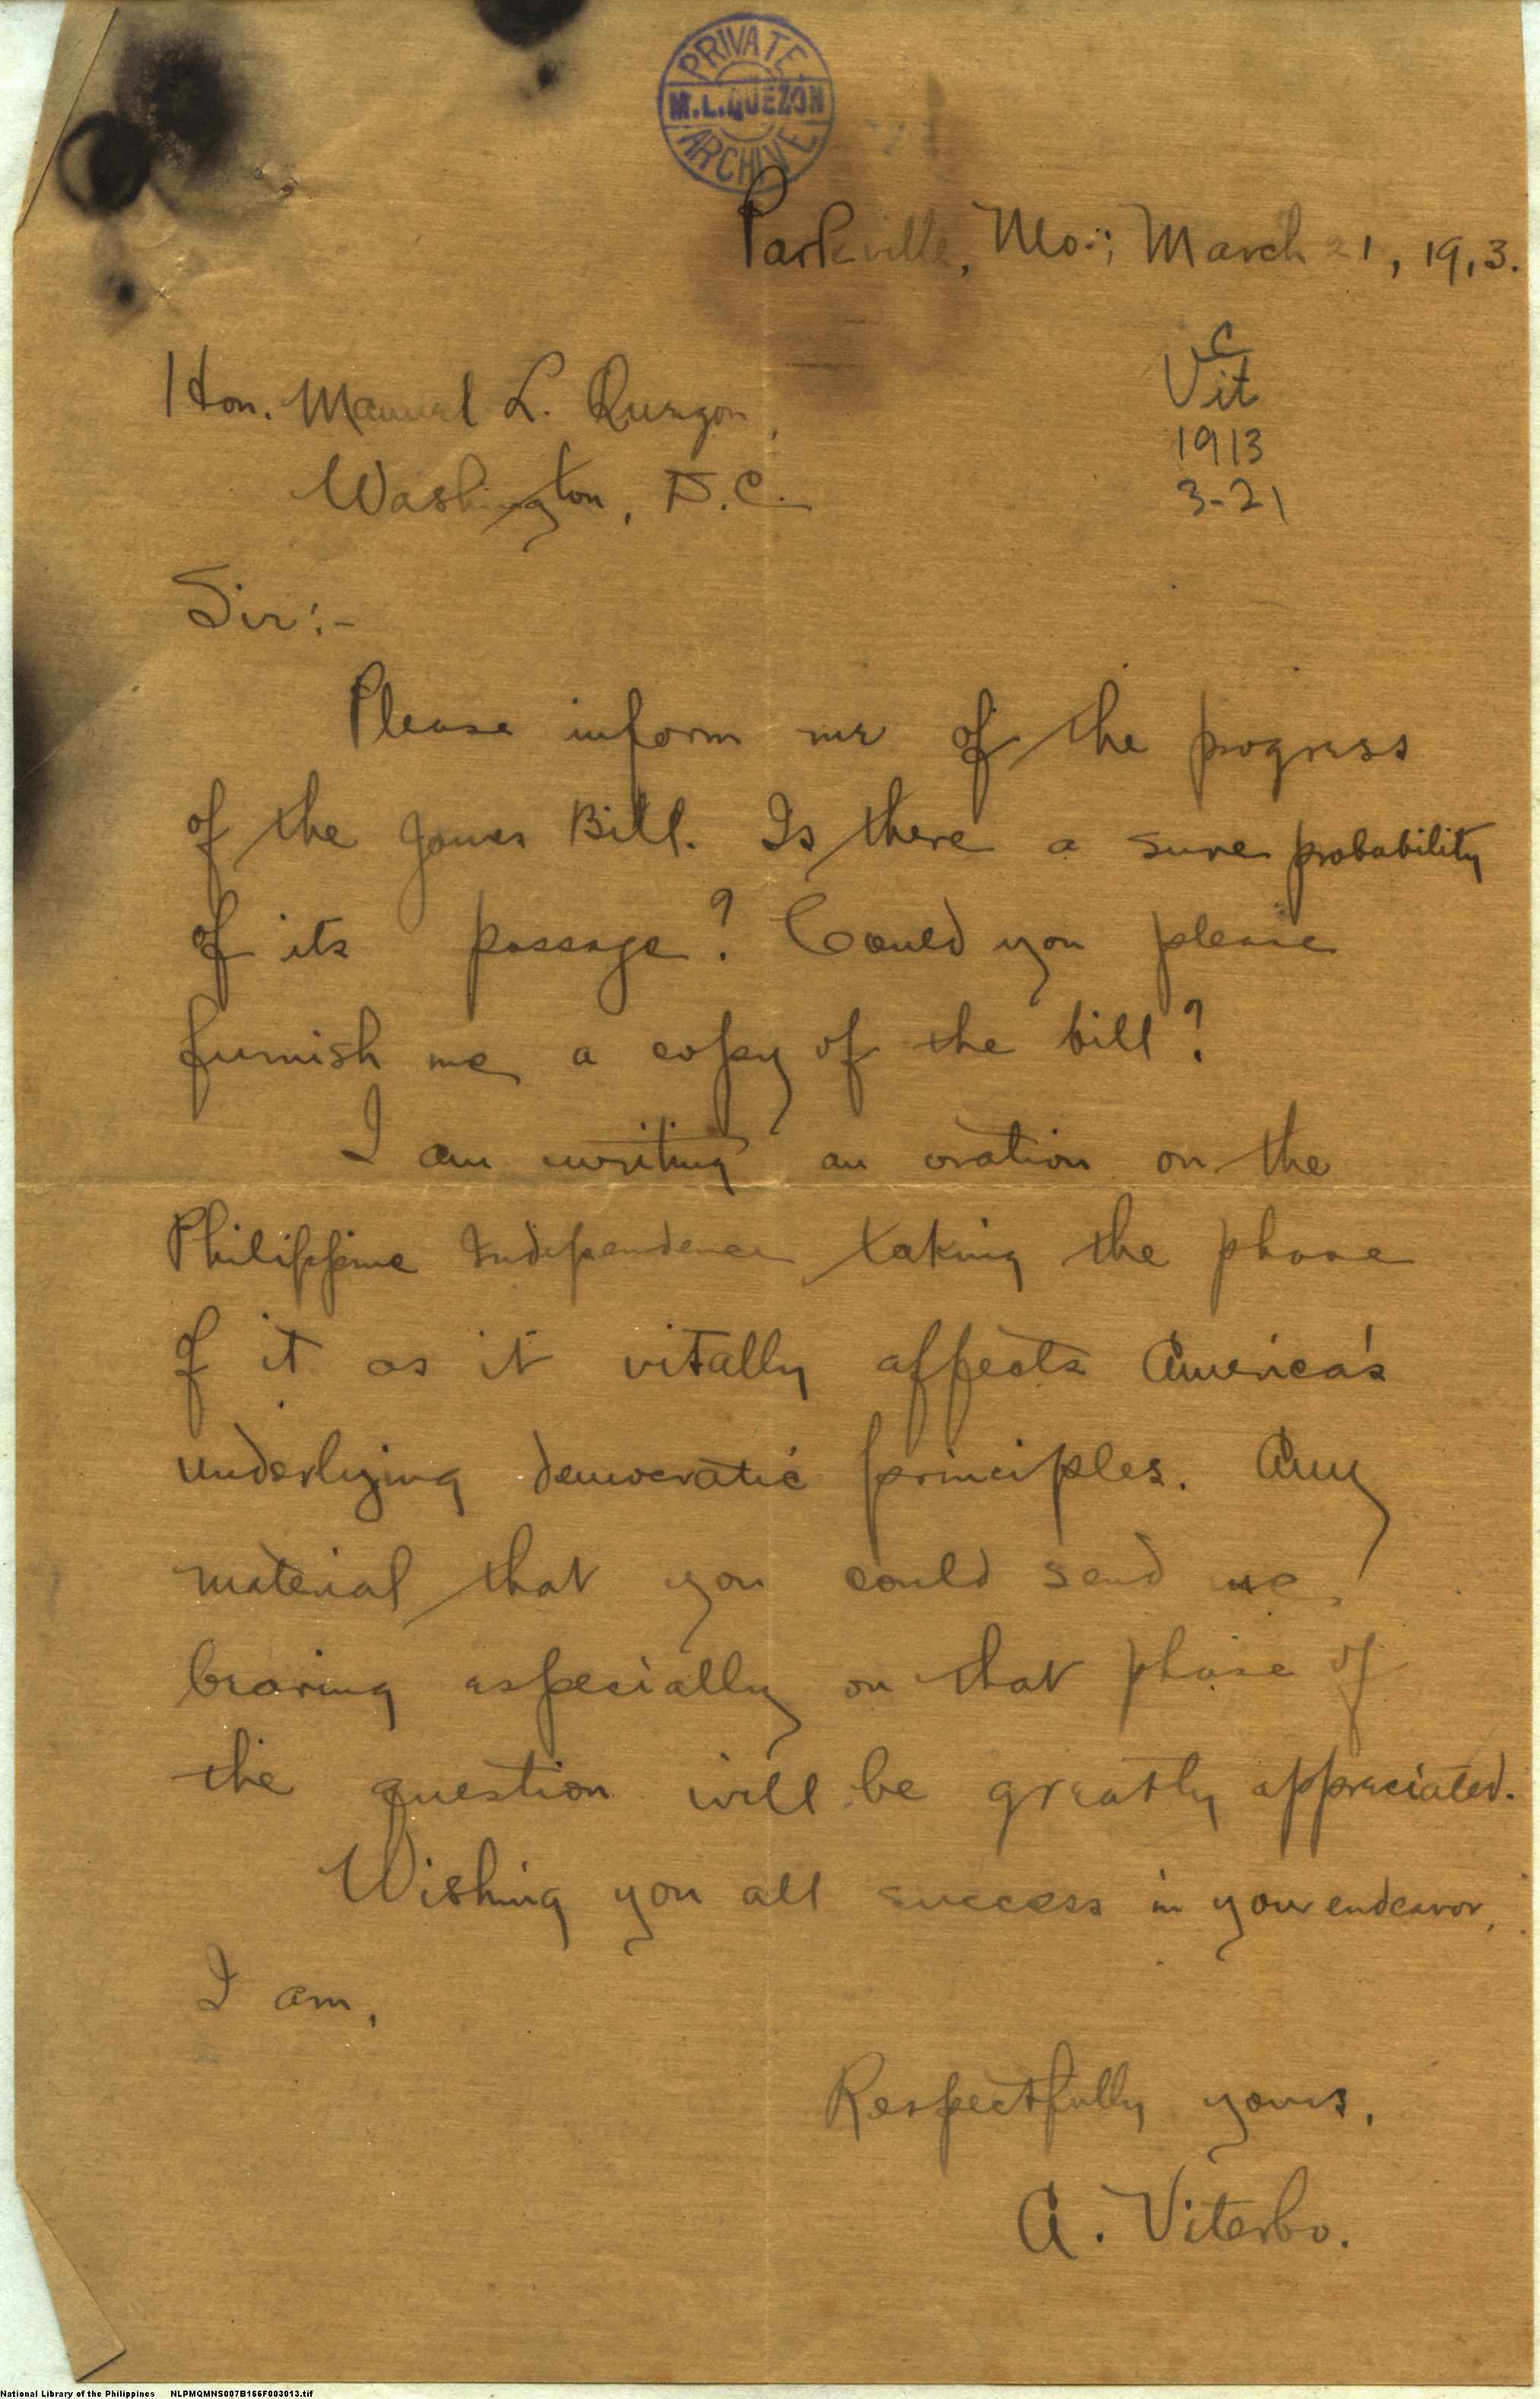 PRIVATE
M.L.QUEZON
ARCHIVE
Parkville, Mo.; March 21, 1913.
C
Vit
1913
3-21
Hon. Manuel L. Quezon,
Washington, D.C.
Sir:-
Please inform me of the progress
of the Jones Bill. Is there a sure probability
of its passage? Could you please
furnish me a copy of the bill?
I am writing an oration on the
Philippine Independence taking the phase
of it as it vitally affects America's
underlying democratic principles. Any
material that you could send me
bearing especially on that phase of
the question will be greatly appreciated.
Wishing you all success in your endeavor,
I am,
Respectfully yours,
A. Viterbo.
National Library of the Philippines NLPMQMNS007B166F003013.tif